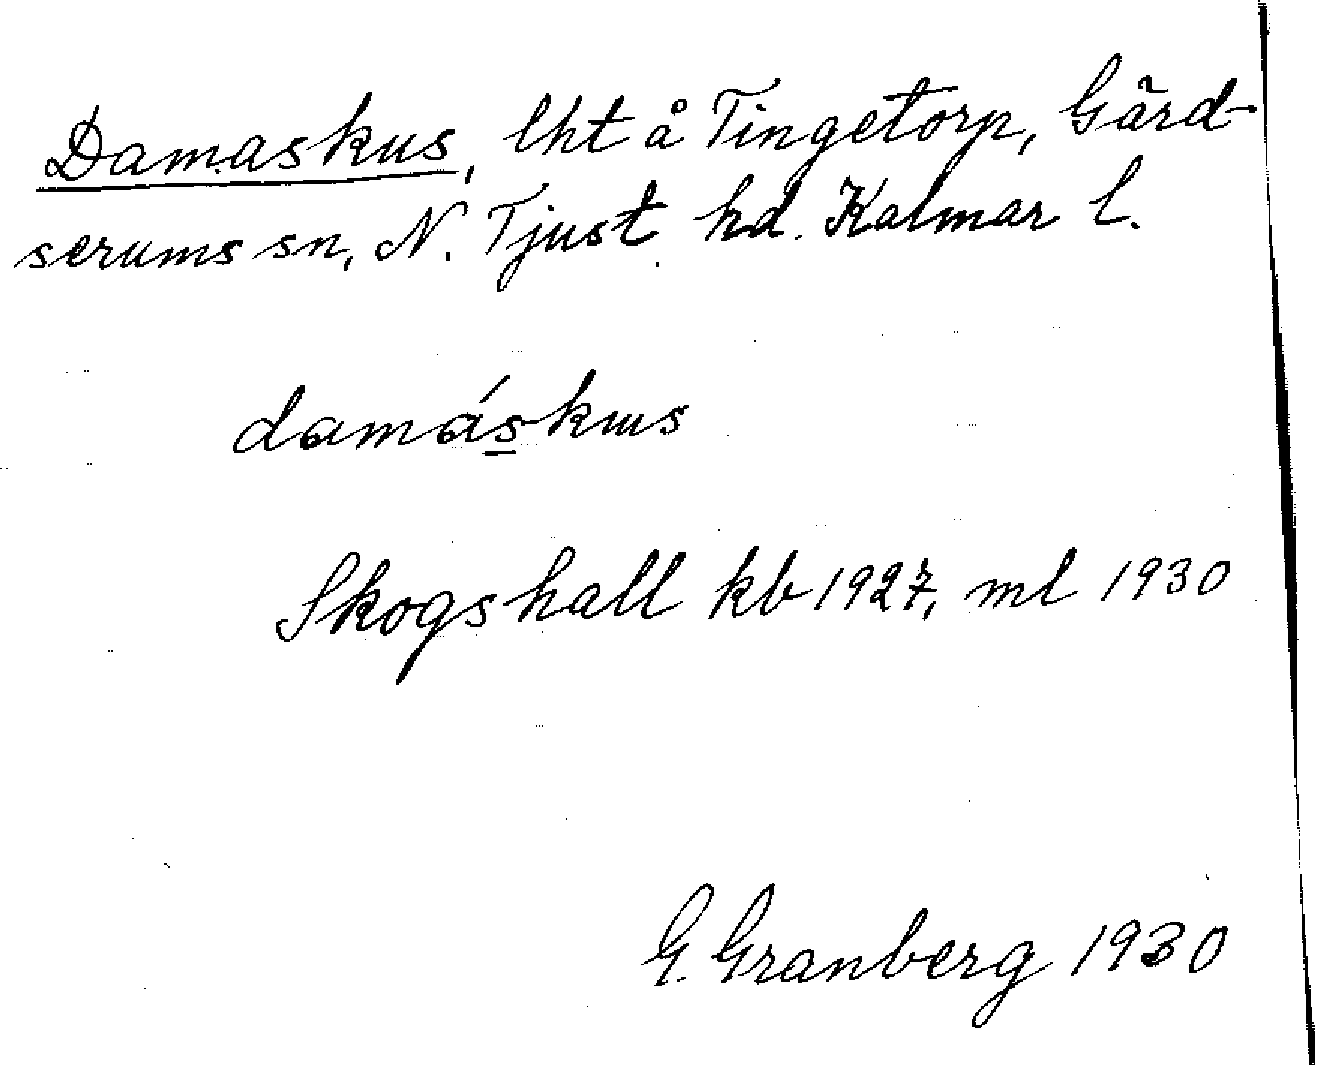 Damaskus, lht å Tingetorp, Gärd-
serums sn, N. Tjust hd. Kalmar l.
damáskɯs
Skogshall kb 1927, ml 1930
G. Granberg 1930